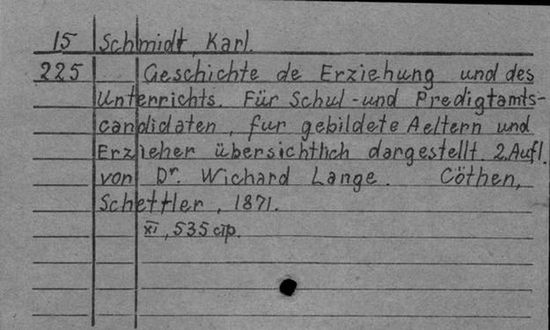 15 Schmidt, Karl.
225 Geschichte de Erziehung und des
Unterrichts. Für Schul-und Predigtamts-
candidaten, fur gebildete Aeltern und
Erzieher übersichtlich dargestellt. 2.Aufl.
von Dr. Wichard Lange. Cöthen,
Schettler, 1871.
XI, 535 стр.